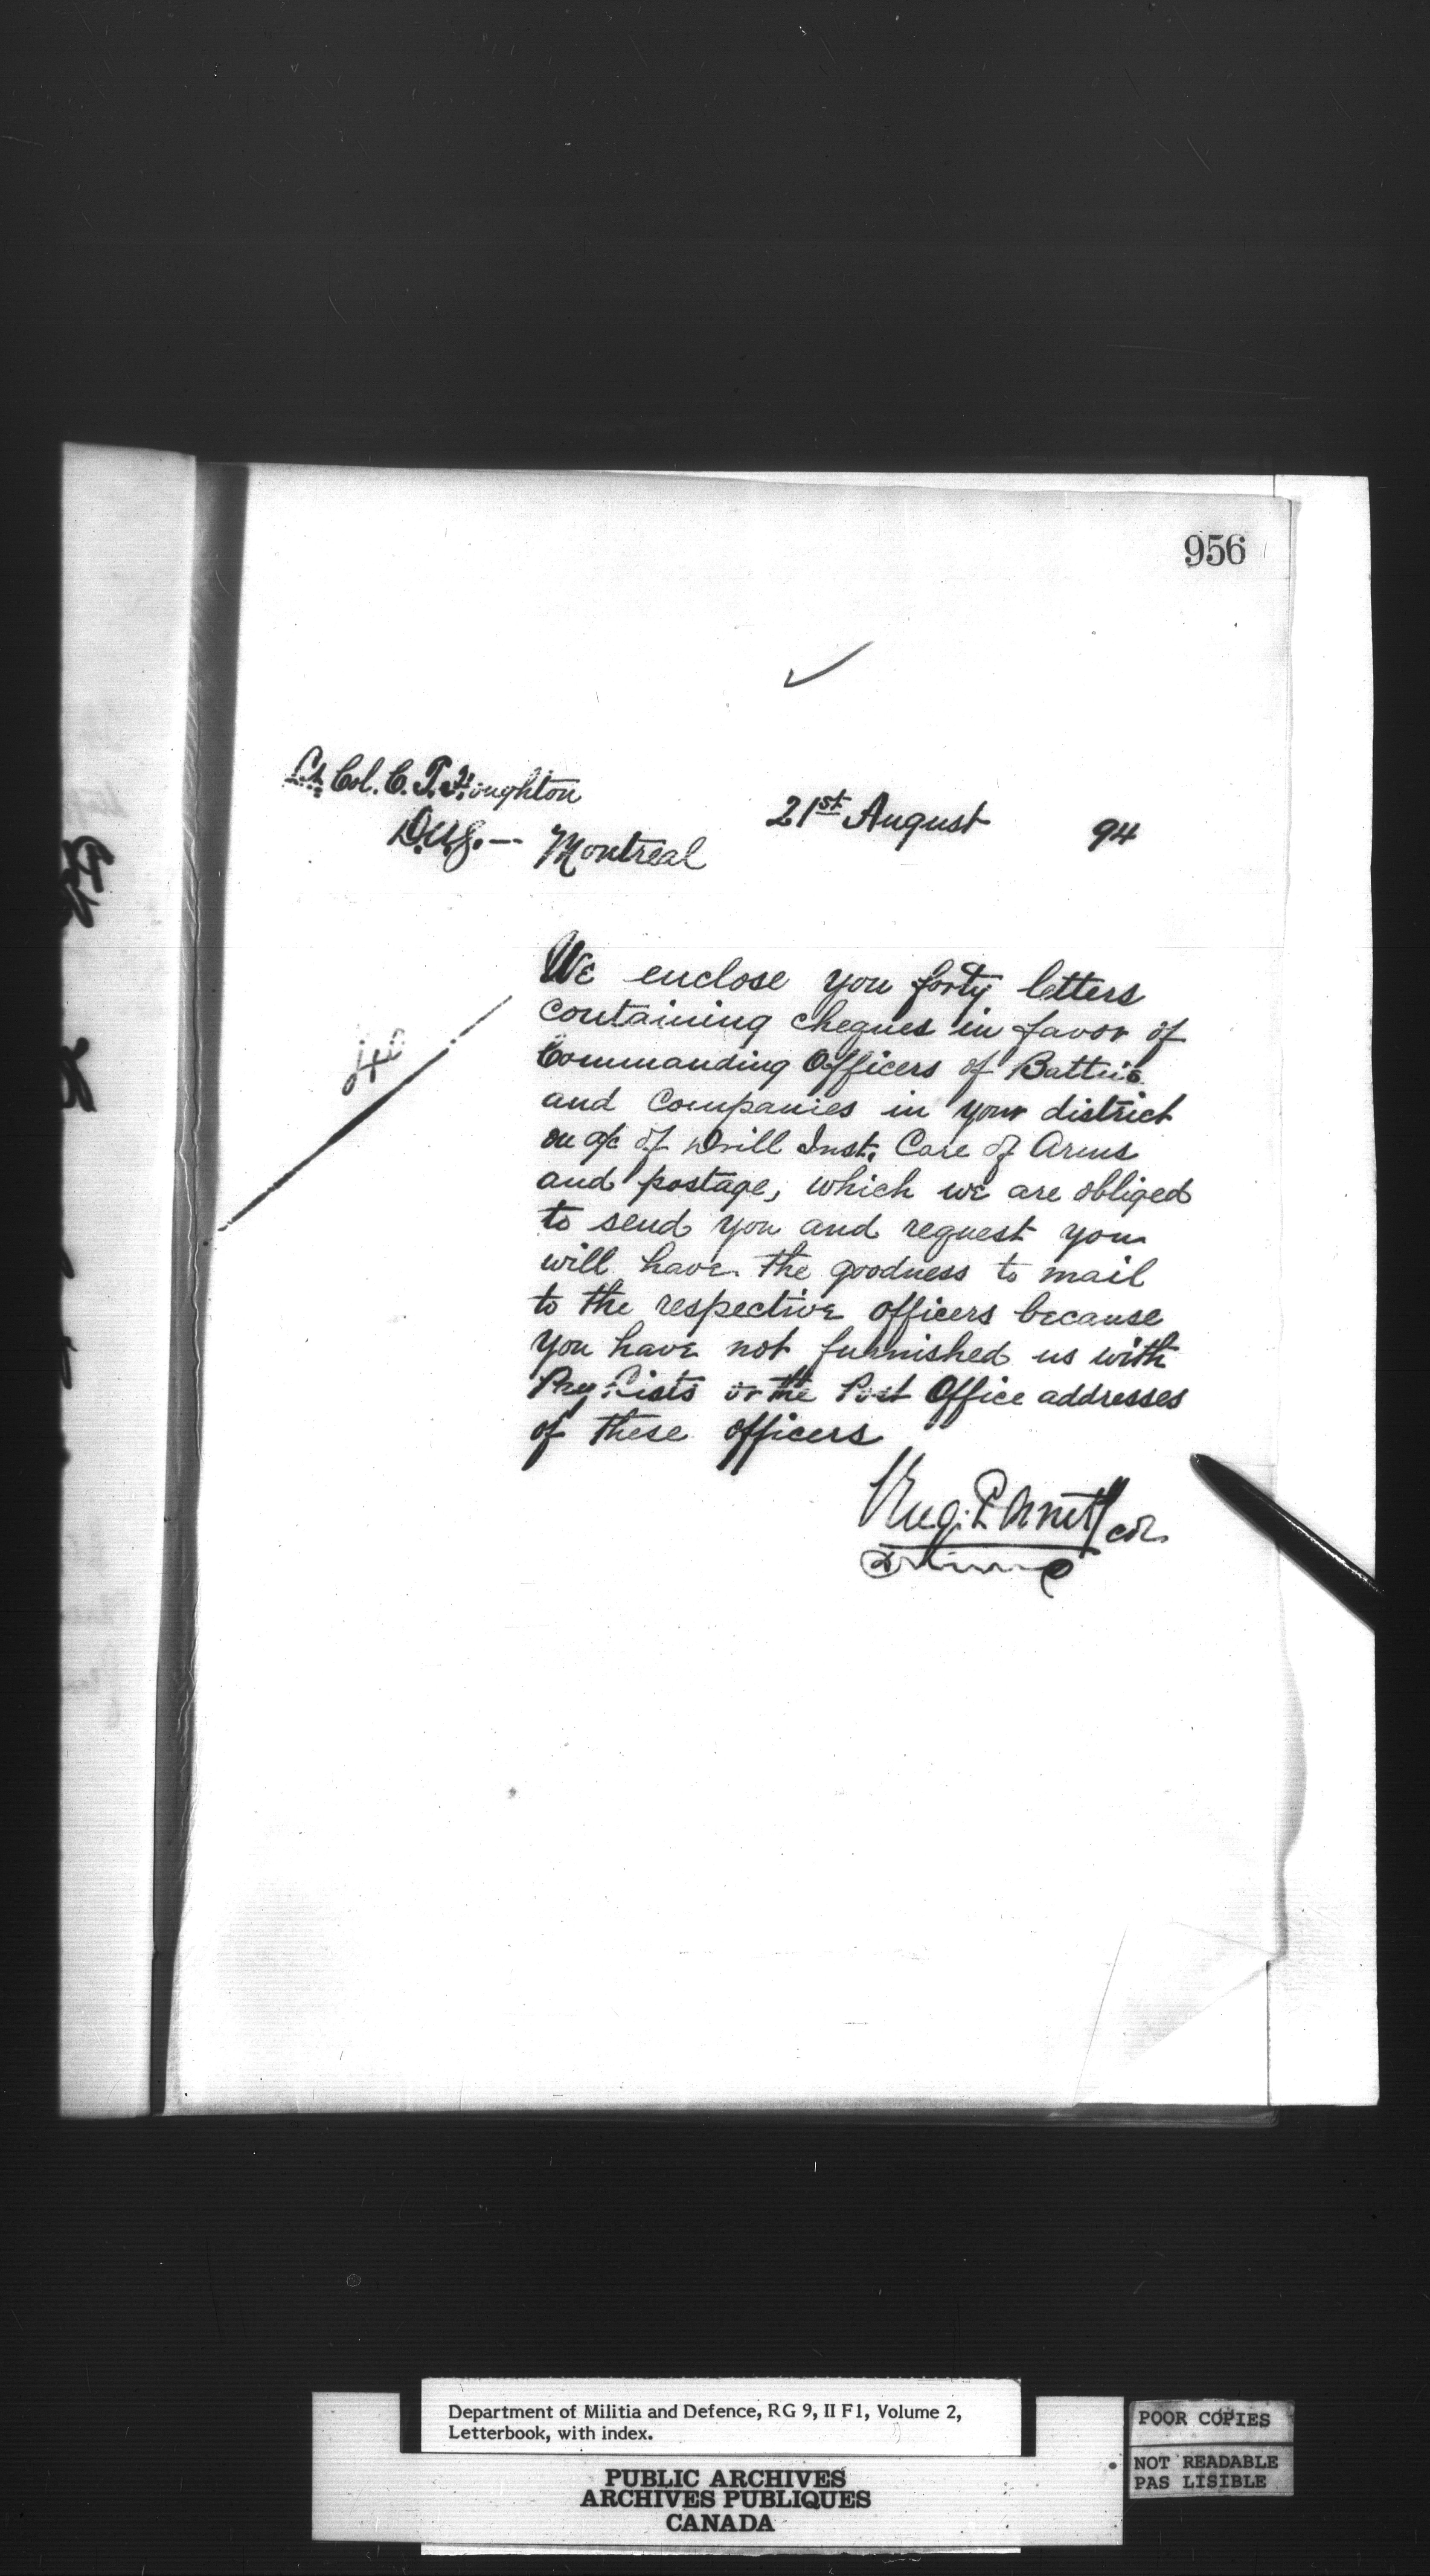 956
Lt. Col. C. F. Houghton
D.A.G. — Montreal
21st August 94
We enclose you forty letters
containing cheques in favor of
Commanding Officers of Batt'ns
and Companies in your district
on a/c of Drill Inst. Care of Arms
and postage, which we are obliged
to send you and request you
will have the goodness to mail
to the respective officers because
you have not furnished us with
Pay Lists or the Post Office addresses
of these officers
Department of Militia and Defence, RG 9, II F1, Volume 2,
Letterbook, with index.
PUBLIC ARCHIVES
ARCHIVES PUBLIQUES
CANADA
POOR COPIES
NOT READABLE
PAS LISIBLE